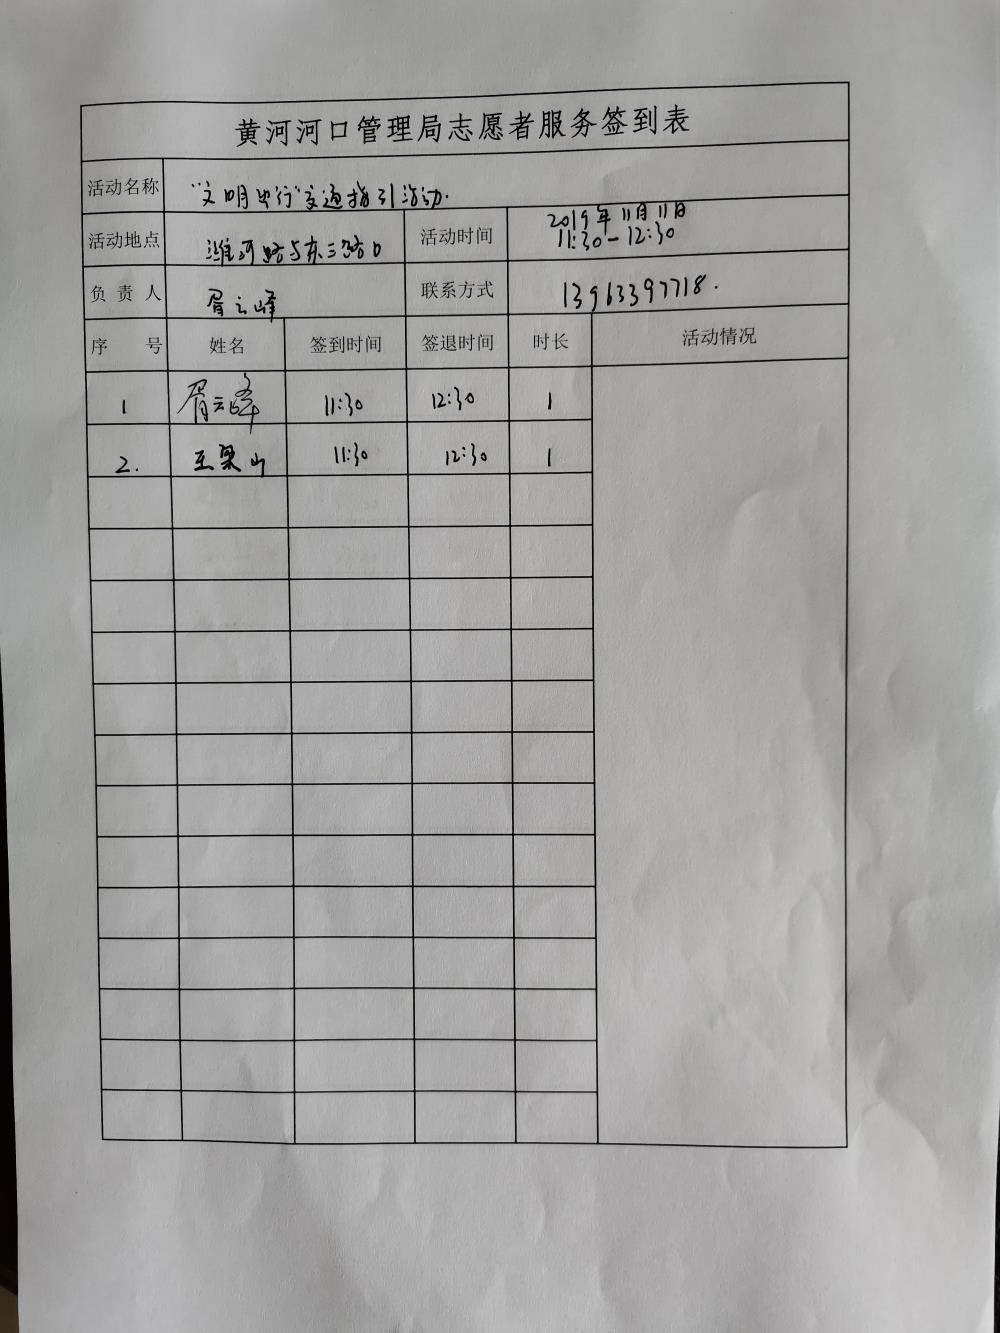 黄河河口管理局志愿者服务签到表
活动名称 “文明出行”交通指引活动.
活动地点 潍河路与东三路口 活动时间 2019年11月11日
11:30-12:30
负责人 胥云峰 联系方式 13963397718.
序号 姓名 签到时间 签退时间 时长 活动情况
1 胥云峰 11:30 12:30 1
2. 王梁山 11:30 12:30 1